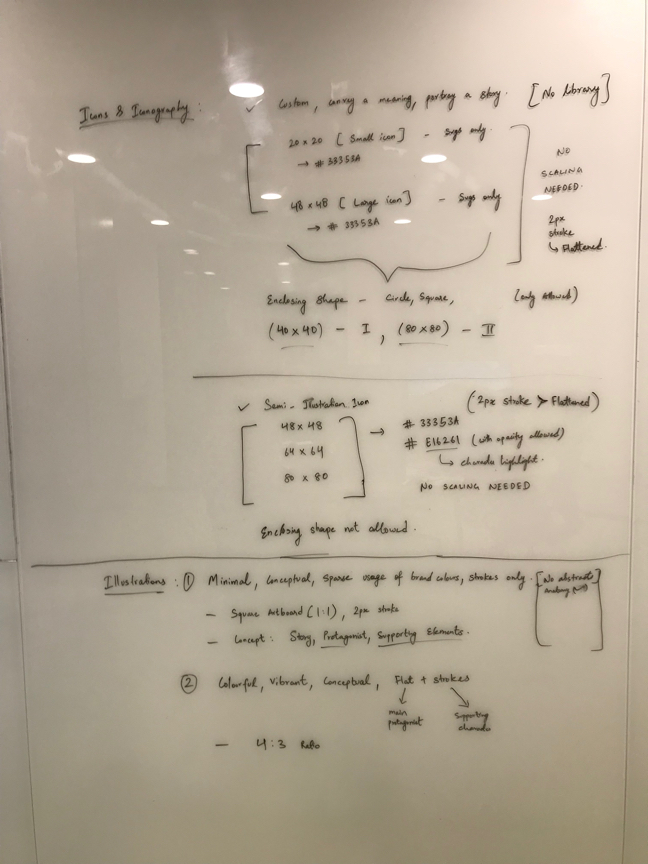 Icons & Iconography : ✓ Custom, convey a meaning, portray a story. [No library]
20 x 20 [Small icon] - Svgs only.
→ # 33353A
48 x 48 [Large icon] - Svgs only
→ # 33353A
NO
SCALING
NEEDED.
2px
stroke
↳ Flattened.
Enclosing Shape - Circle, Square, (only allowed)
(40 x 40) - I , (80 x 80) - II
✓ Semi-Illustration Icon (2px stroke > Flattened)
48 x 48
64 x 64
80 x 80
→ # 33353A
# E16261 (with opacity allowed)
↳ character highlight.
NO SCALING NEEDED
Enclosing shape not allowed.
Illustrations : ① Minimal, Conceptual, sparse usage of brand colours, strokes only. [No abstract]
- Square Artboard (1:1), 2px stroke
- Concept : Story, Protagonist, Supporting Elements.
② Colourful, Vibrant, Conceptual, Flat + strokes
main
protagonist
Supporting
character
- 4:3 Ratio